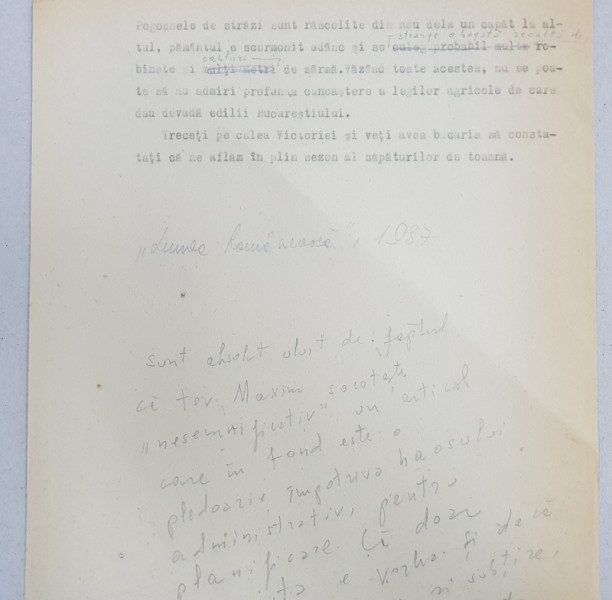 Pogoanele de străzi sunt răscolite din nou dela un capăt la al-
strânge abogată recoltă de
tul, pământul e scormonit adânc și se culeg probabil multe ro-
binete și mulți metri de sârmă. Văzând toate acestea, nu se poa-
te să nu admiri profunda cunoaștere a legilor agricole de care
dau dovadă edilii Bucureștiului.
Treceți pe calea Victoriei și veți avea bucuria să consta-
tați că ne aflăm în plin sezon al săpăturilor de toamnă.
„Lumea Românească”, 1937
Sunt absolut uluit de faptul
că tov. Maxim socotește
„nesemnificativ” un articol
care în fond este o
pledoarie împotriva haosului
administrativ, pentru
planificare. Că doar
e vorba. Și dacă
și subțire,